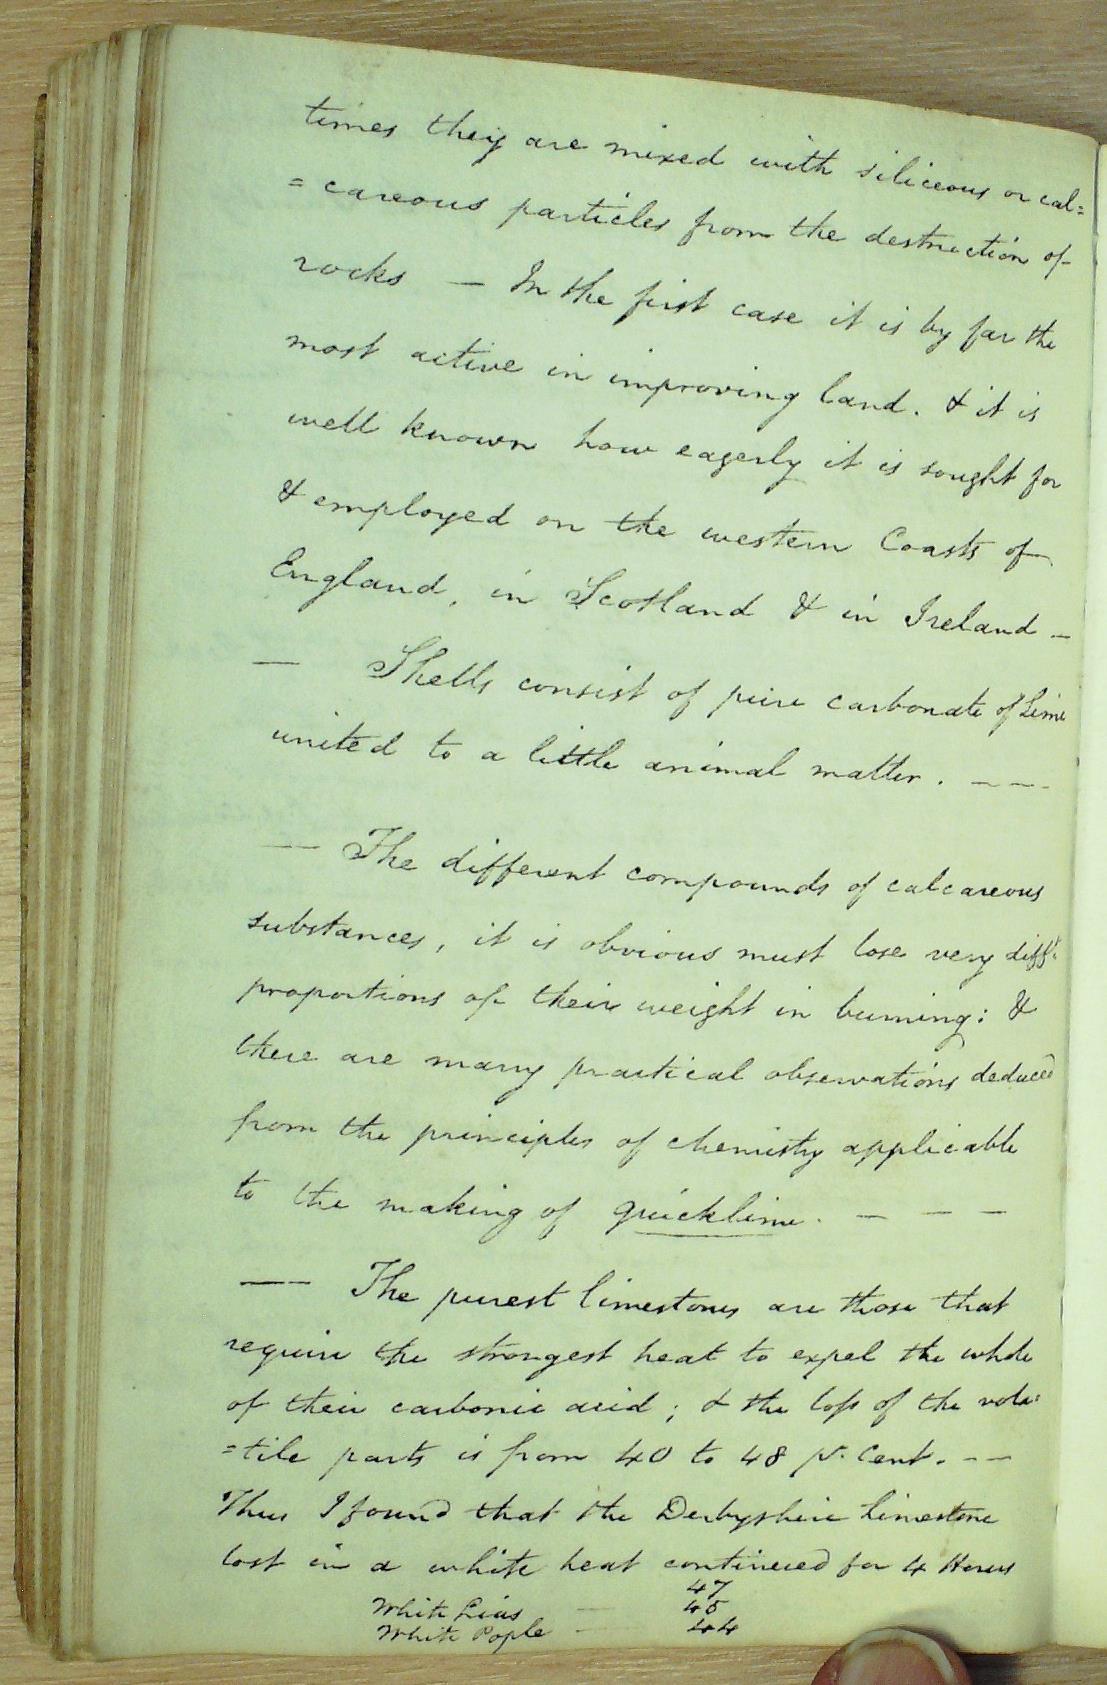 times they are mixed with siliceous or cal=
=careous particles from the destruction of
rocks — In the first case it is by far the
most active in improving land. & it is
well known how eagerly it is sought for
& employed on the western Coasts of
England, in Scotland & in Ireland —
— Shells consist of pure carbonate of Lime
united to a little animal matter. — —
— The different compounds of calcareous
substances, it is obvious must lose very difft.
proportions of their weight in burning: &
there are many practical observations deduced
from the principles of chemistry applicable
to the making of quicklime. — — —
— The purest limestones are those that
require the strongest heat to expel the whole
of their carbonic acid; & the loss of the vola=
=tile parts is from 40 to 48 pr. Cent. — —
Thus I found that the Derbyshire limestone
lost in a white heat continued for 4 Hours
47
White Lias — 45
White Pople — 44